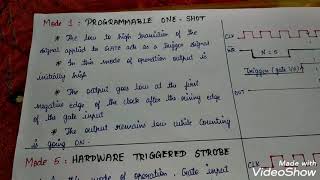 Mode 1 : PROGRAMMABLE ONE - SHOT
* The low to high transition of the
signal applied to GATE acts as a trigger signal
* In this mode of operation output is
initially high
* The output goes low at the first
negative edge of the clock after the rising edge
of the gate input
* The output remains low while counting
is going ON.
Mode 5 : HARDWARE TRIGGERED STROBE
this mode of operation, Gate input
CLK
WR
N = 5
Trigger (gate
OUT
CLK
Made with
VideoShow